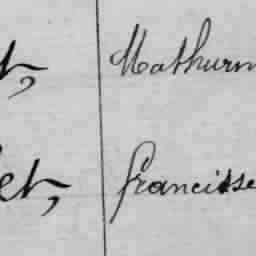 t, Mathurin
et, francisse